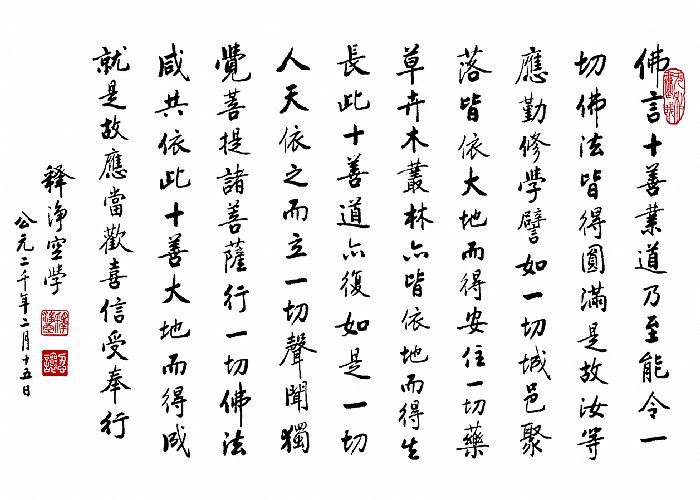 佛言十善業道乃至能令一
切佛法皆得圓滿是故汝等
應勤修學譬如一切城邑聚
落皆依大地而得安住一切藥
草卉木叢林亦皆依地而得生
長此十善道亦復如是一切
人天依之而立一切聲聞獨
覺菩提諸菩薩行一切佛法
咸共依此十善大地而得成
就是故應當歡喜信受奉行
釋淨空學
公元二千年二月十五日